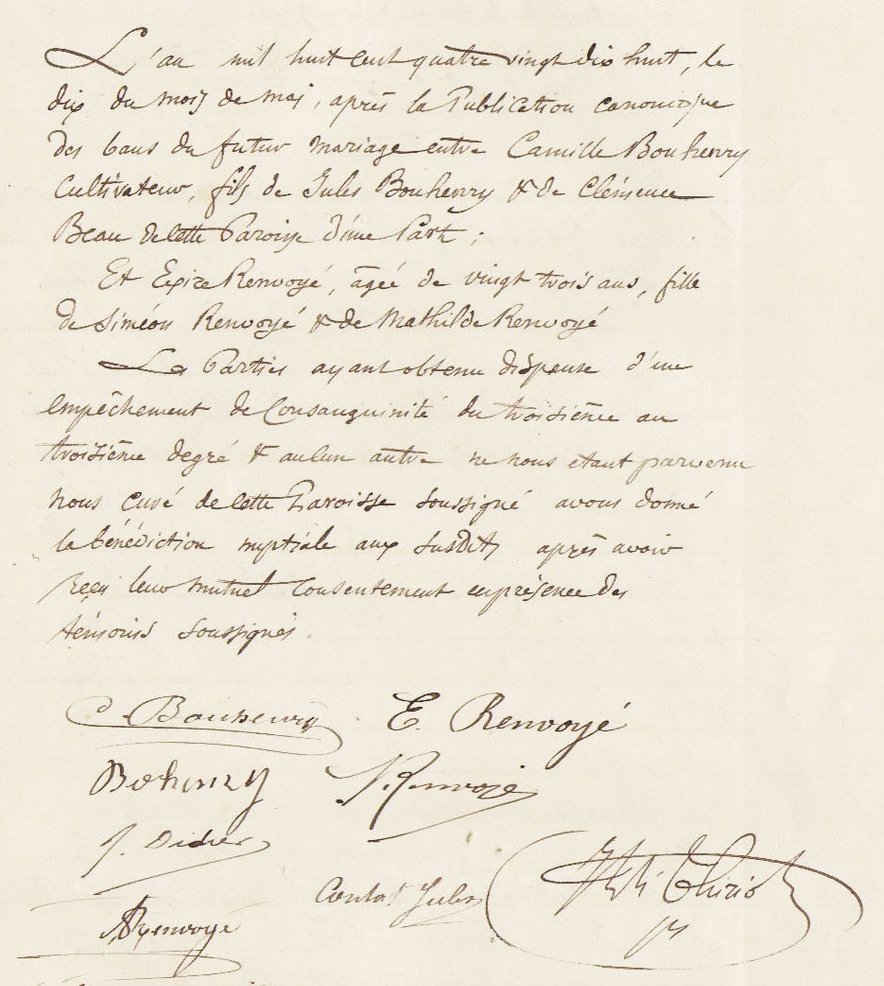 L'an mil huit cent quatre vingt dix huit, le
dix du mois de mai, après la Publication canonique
des bans du futur mariage entre Camille Bouhenry
Cultivateur, fils de Jules Bouhenry & de Clémence
Beau de cette Paroisse d'une Part ;
Et Renvoyé, âgée de vingt trois ans, fille
de Siméon Renvoyé & de Mathilde Renvoyé
Les Parties ayant obtenu dispense d'un
empêchement de Consanguinité du troisième au
troisième degré & aucun autre ne nous etant parvenu
nous curé de cette Paroisse soussigné avons donné
la bénédiction nuptiale aux susdits après avoir
reçu leur mutuel consentement en présence des
témoins soussignés.
C. Bouhenry E. Renvoyé
Bohenry J. Renvoyé
J. Didier
Contal Jules
Renvoyé
Thiriot